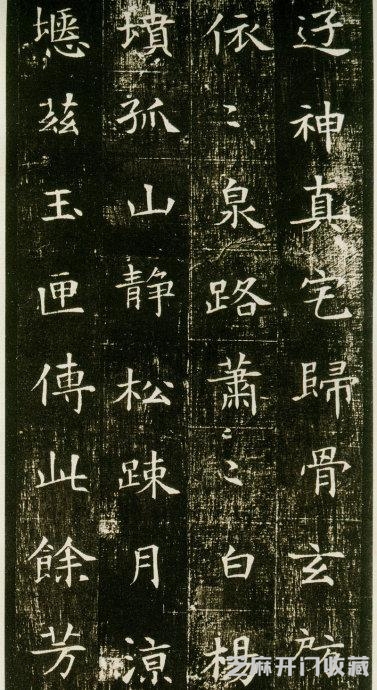 神真宅歸骨玄房
依〻泉路蕭〻白楊
墳孤山静松踈月涼
兹玉匣傳此餘芳
芝麻开门收藏